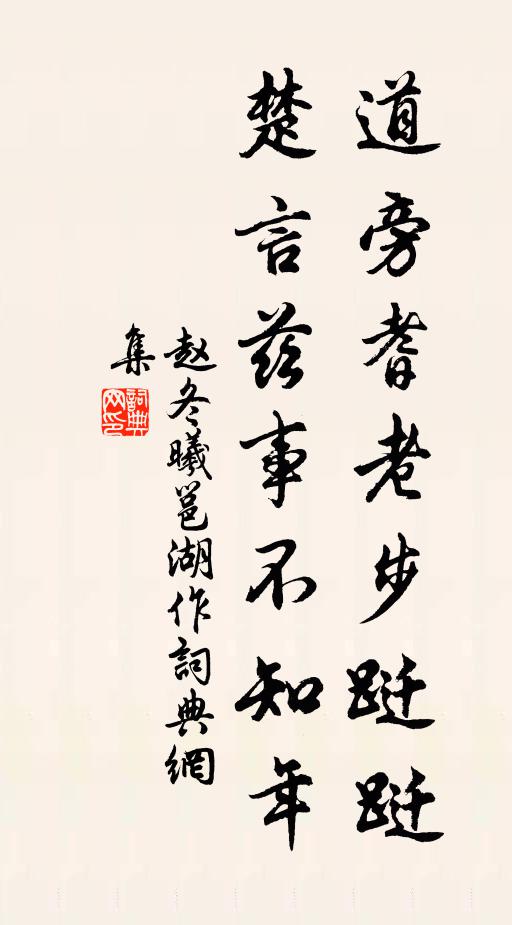 道旁耆老步跹跹
楚言兹事不知年
赵冬曦邕湖作詞典網
集
詞典
网印